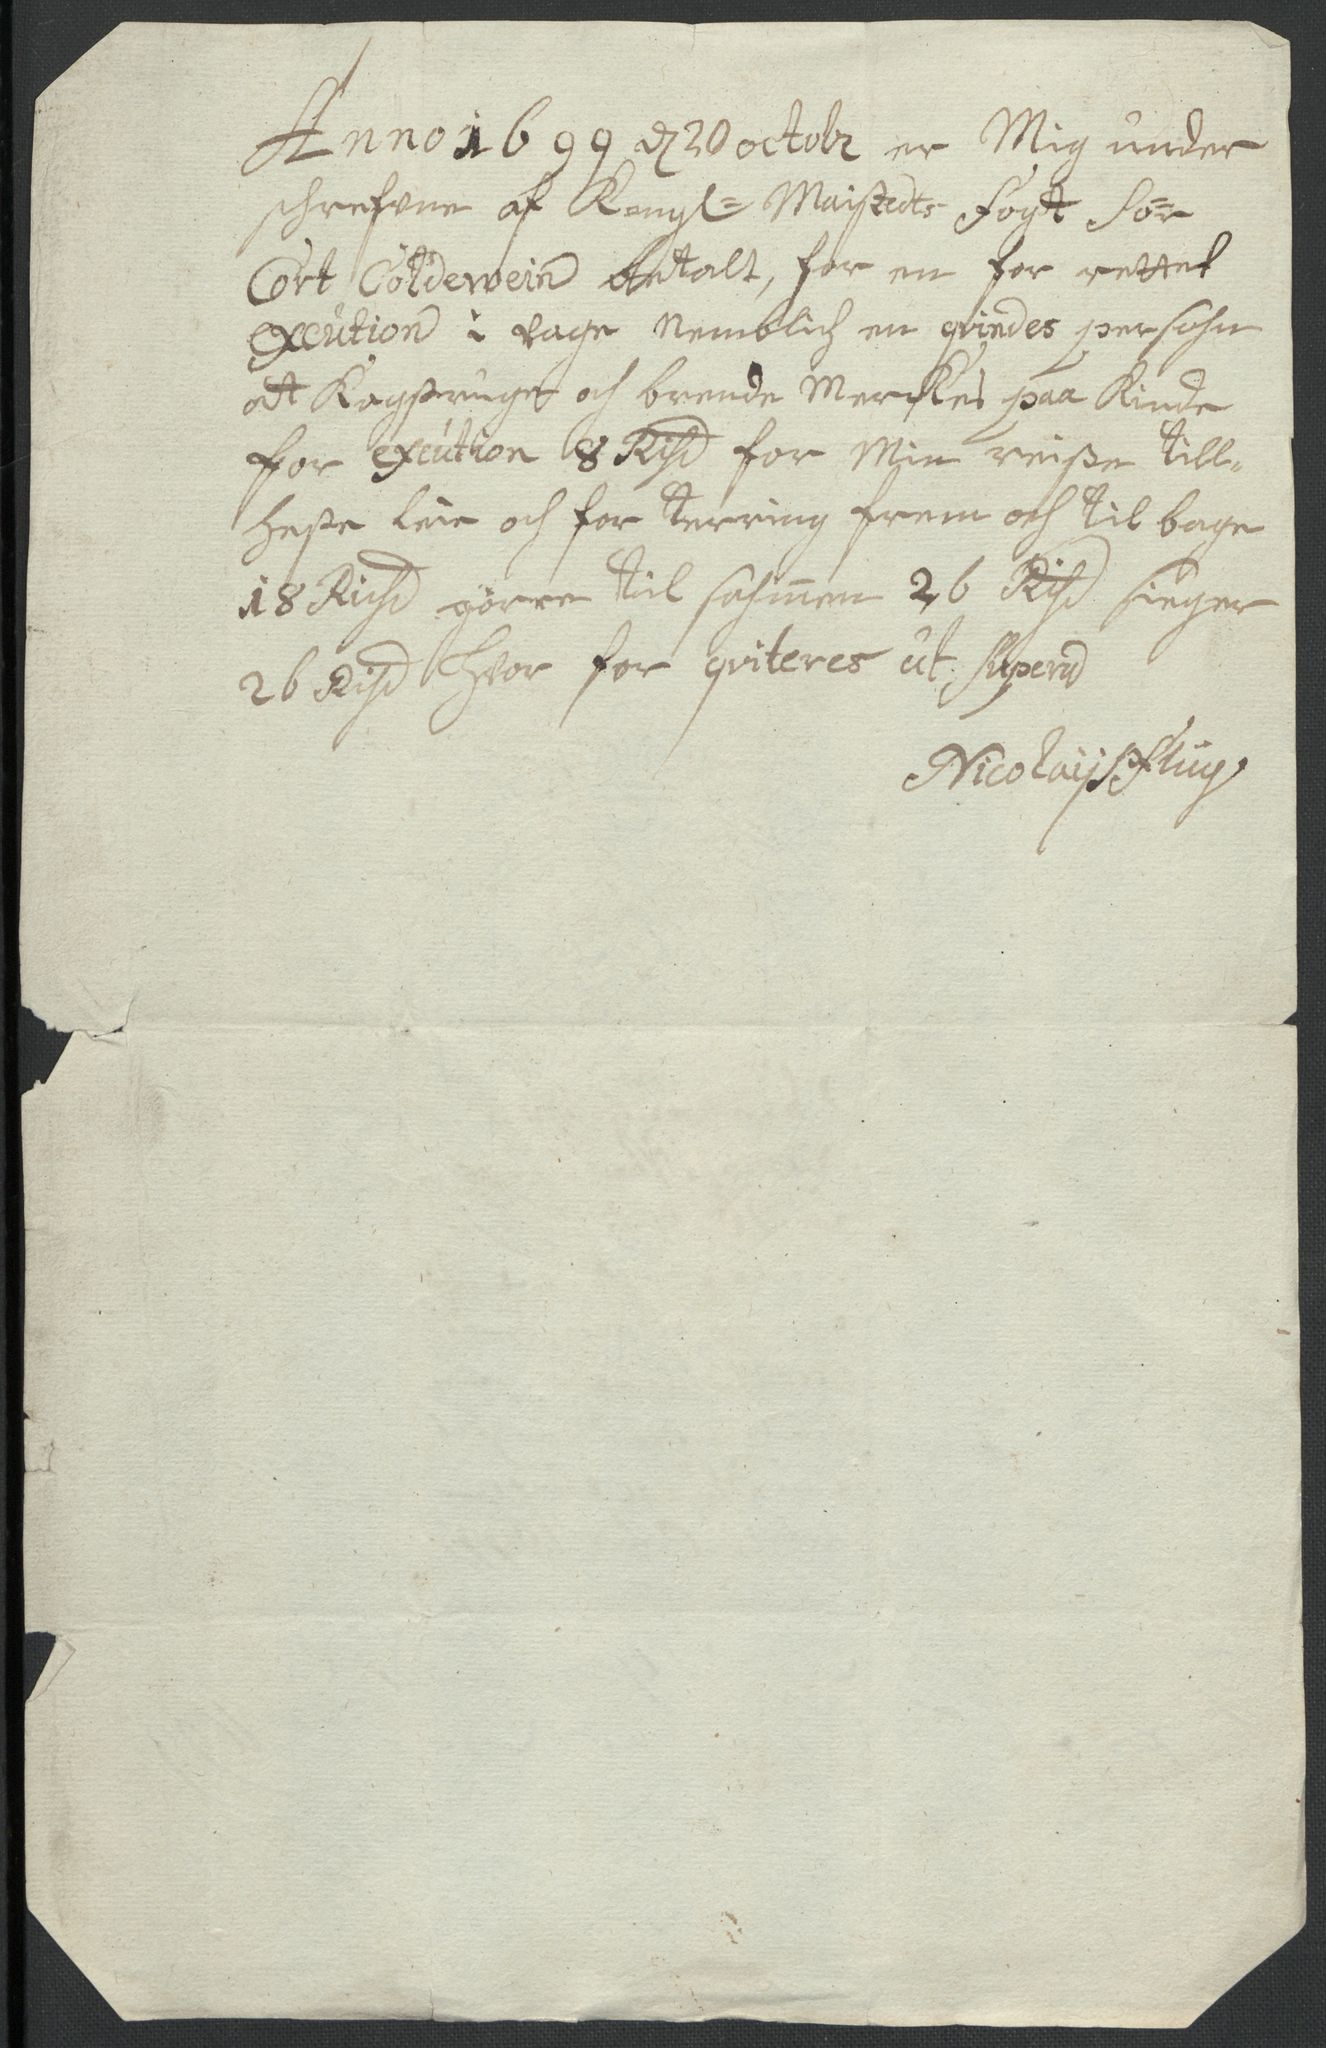 Anno 1699 d 20 octobr er Mig under
schrefvne af Kongl= Maÿstedts Fogt Sör
Cort Cöldewein betalt, for en for rettet
Execution i dage Nemblich en qvindes persohn
att Kagstrüget och brende Merckes paa Kinde
for Execution 8 Rixd for Min reiße till=
heste leie och for terring frem och til bage
18 Rixd görre til sahmen 26 Rixd sieger
26 Rixd hvor for qviteres ut Supera
Nicolaÿ Pflug